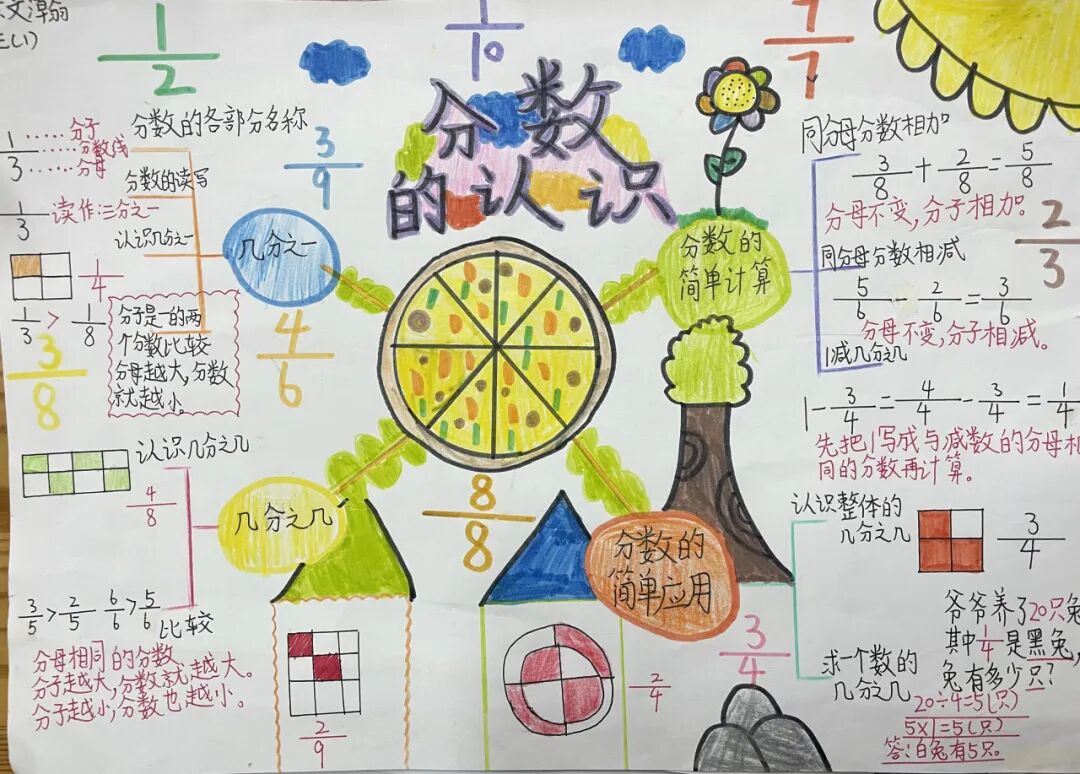 文湋翁
三(1)
1/2
1/10
7/7
分数
的认识
分数的各部分名称
1/3 ……分子
……分数线
……分母
3/9
分数的读写
1/3 读作三分之一
认识几分之一
1/4
几分之一
1/3 > 1/8
分子是一的两
个分数比较
分母越大,分数
就越小。
3/8
4/6
认识几分之几
4/8
几分之几
3/5 > 2/5 6/6 > 5/6
比较
分母相同的分数
分子越大,分数就越大。
分子越小,分数也越小。
2/9
8/8
2/4
分数的
简单计算
同分母分数相加
3/8 + 2/8 = 5/8
分母不变,分子相加。
2/3
同分母分数相减
5/6 - 2/6 = 3/6
分母不变,分子相减。
1减几分之几
1 - 3/4 = 4/4 - 3/4 = 1/4
先把1写成与减数的分母相
同的分数再计算。
分数的
简单应用
认识整体的
几分之几
3/4
3/4
求一个数的
几分之几
爷爷养了20只兔
其中1/4是黑兔,
兔有多少只?
20÷4=5(只)
5×1=5(只)
答:白兔有5只。